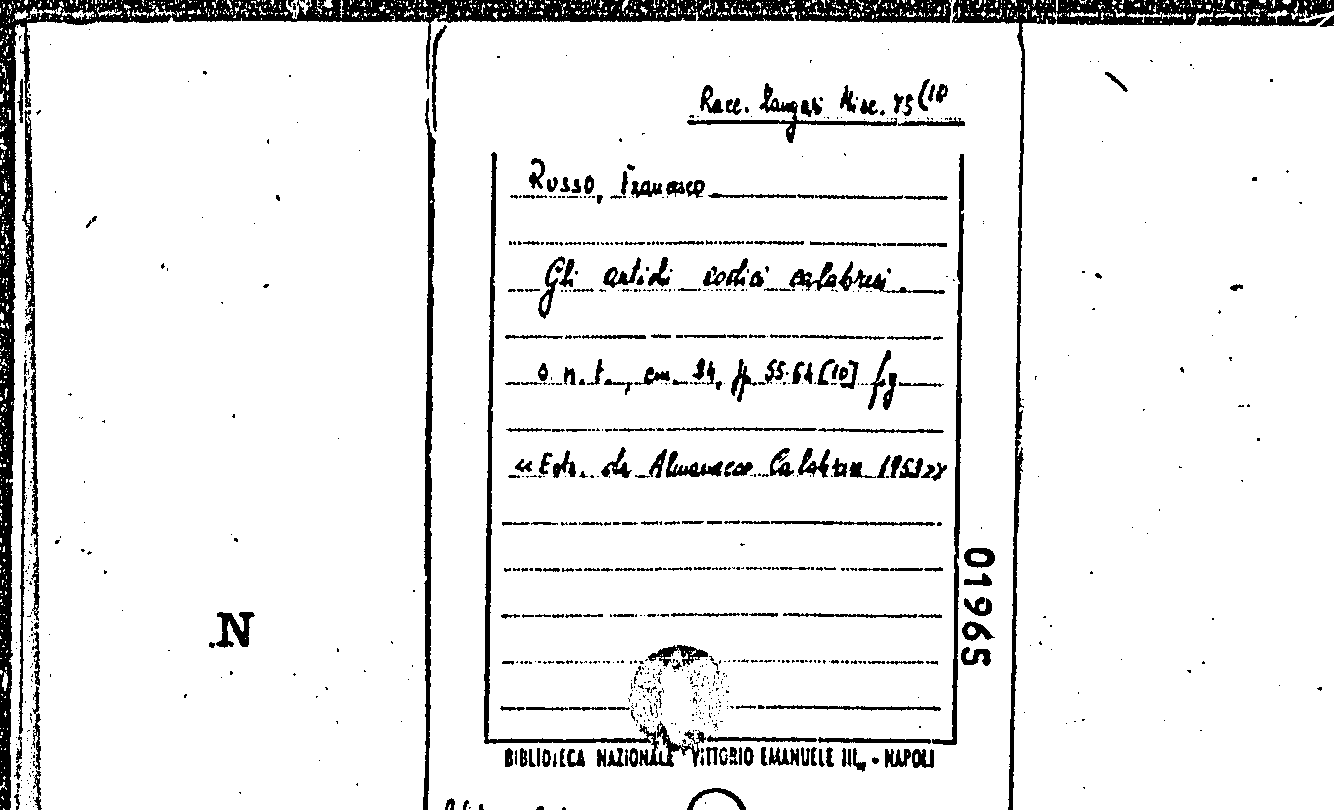 Racc. Zangari Misc. 75(10
Russo, Francesco
Gli antichi codici calabresi.
s. n. t., cm. 24, pp. 55-64 [10] fig
«Estr. da Almanacco Calabrese 1953»
01965
.N
BIBLIOTECA NAZIONALE VITTORIO EMANUELE III - NAPOLI